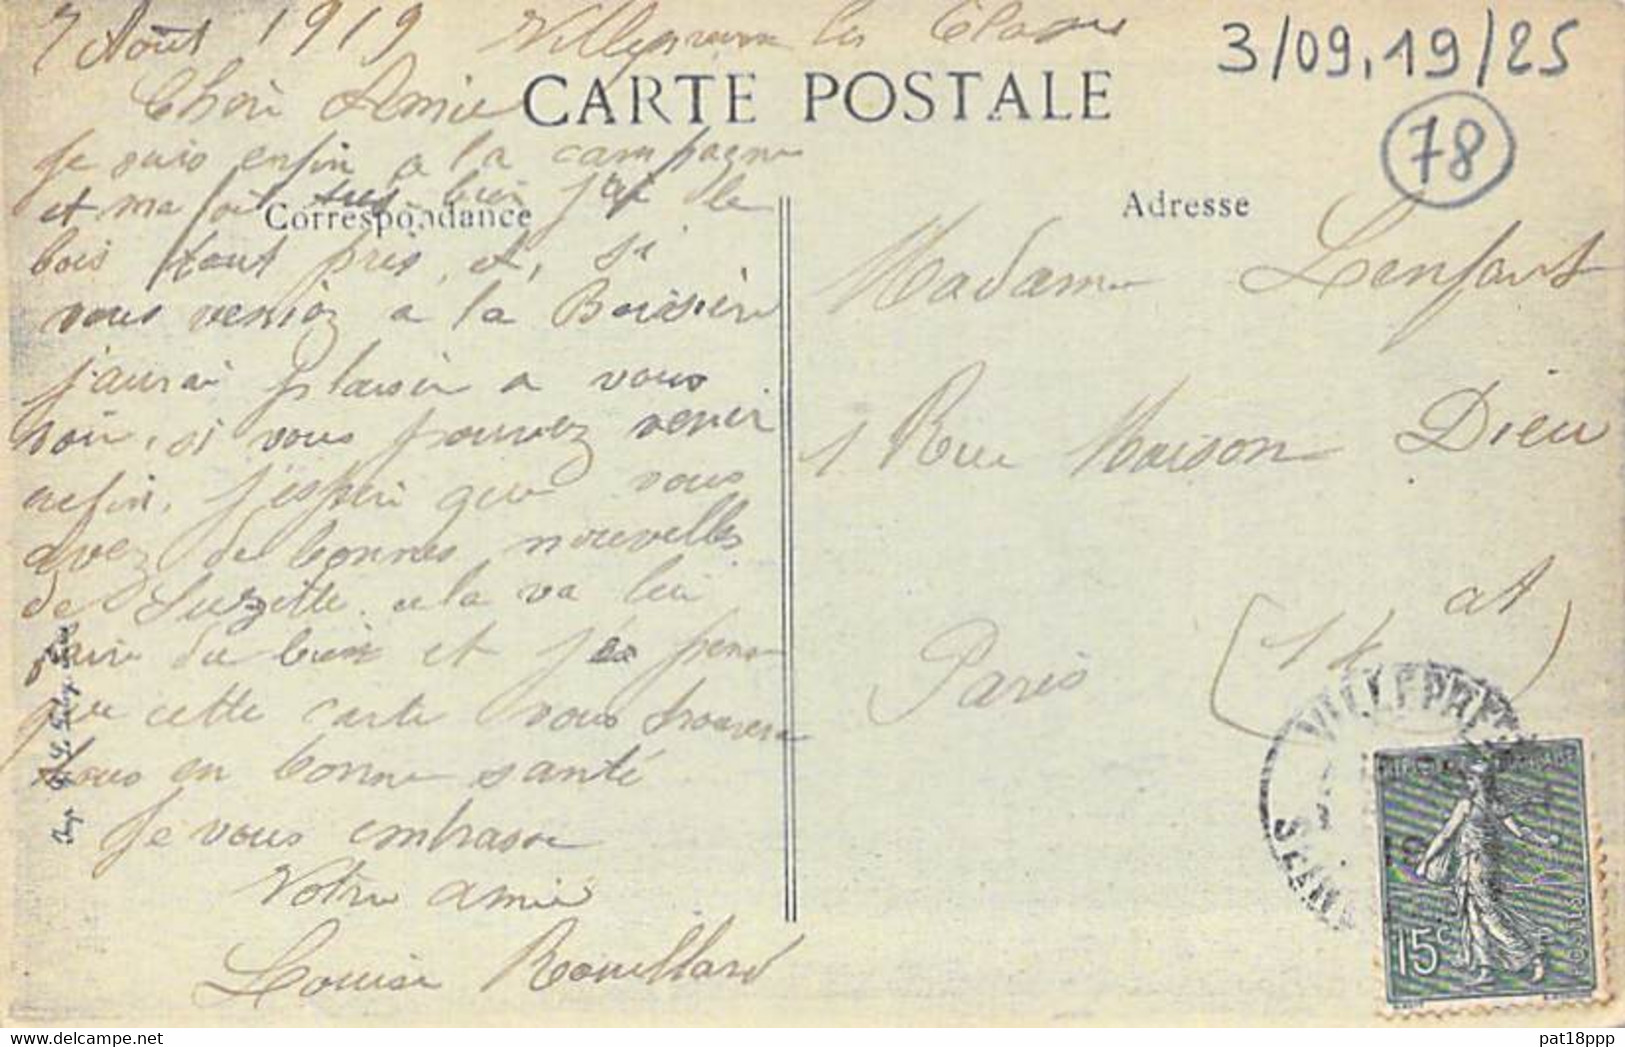 7 Août 1919 Villepreux les Clayes
3/09.19/25
78
CARTE POSTALE
Correspondance
Adresse
Chère Amie
Je suis enfin a la campagne
et ma foi très bien j'ai le
bois tout près, et, si
vous veniez a la Boissière
j'aurai plaisir a vous
voir, si vous pouvez venir
enfin, j'espère que vous
avez de bonnes nouvelles
de Suzette, cela va lui
faire du bien et je pense
que cette carte vous trouvera
tous en bonne santé
Je vous embrasse
Votre amie
Louise Rouillard
Madame Lenfant
1 Rue Maison Dieu
Paris (14 at)
VILLEPREUX
SEINE
15c
POSTES
Imp.
pat18ppp